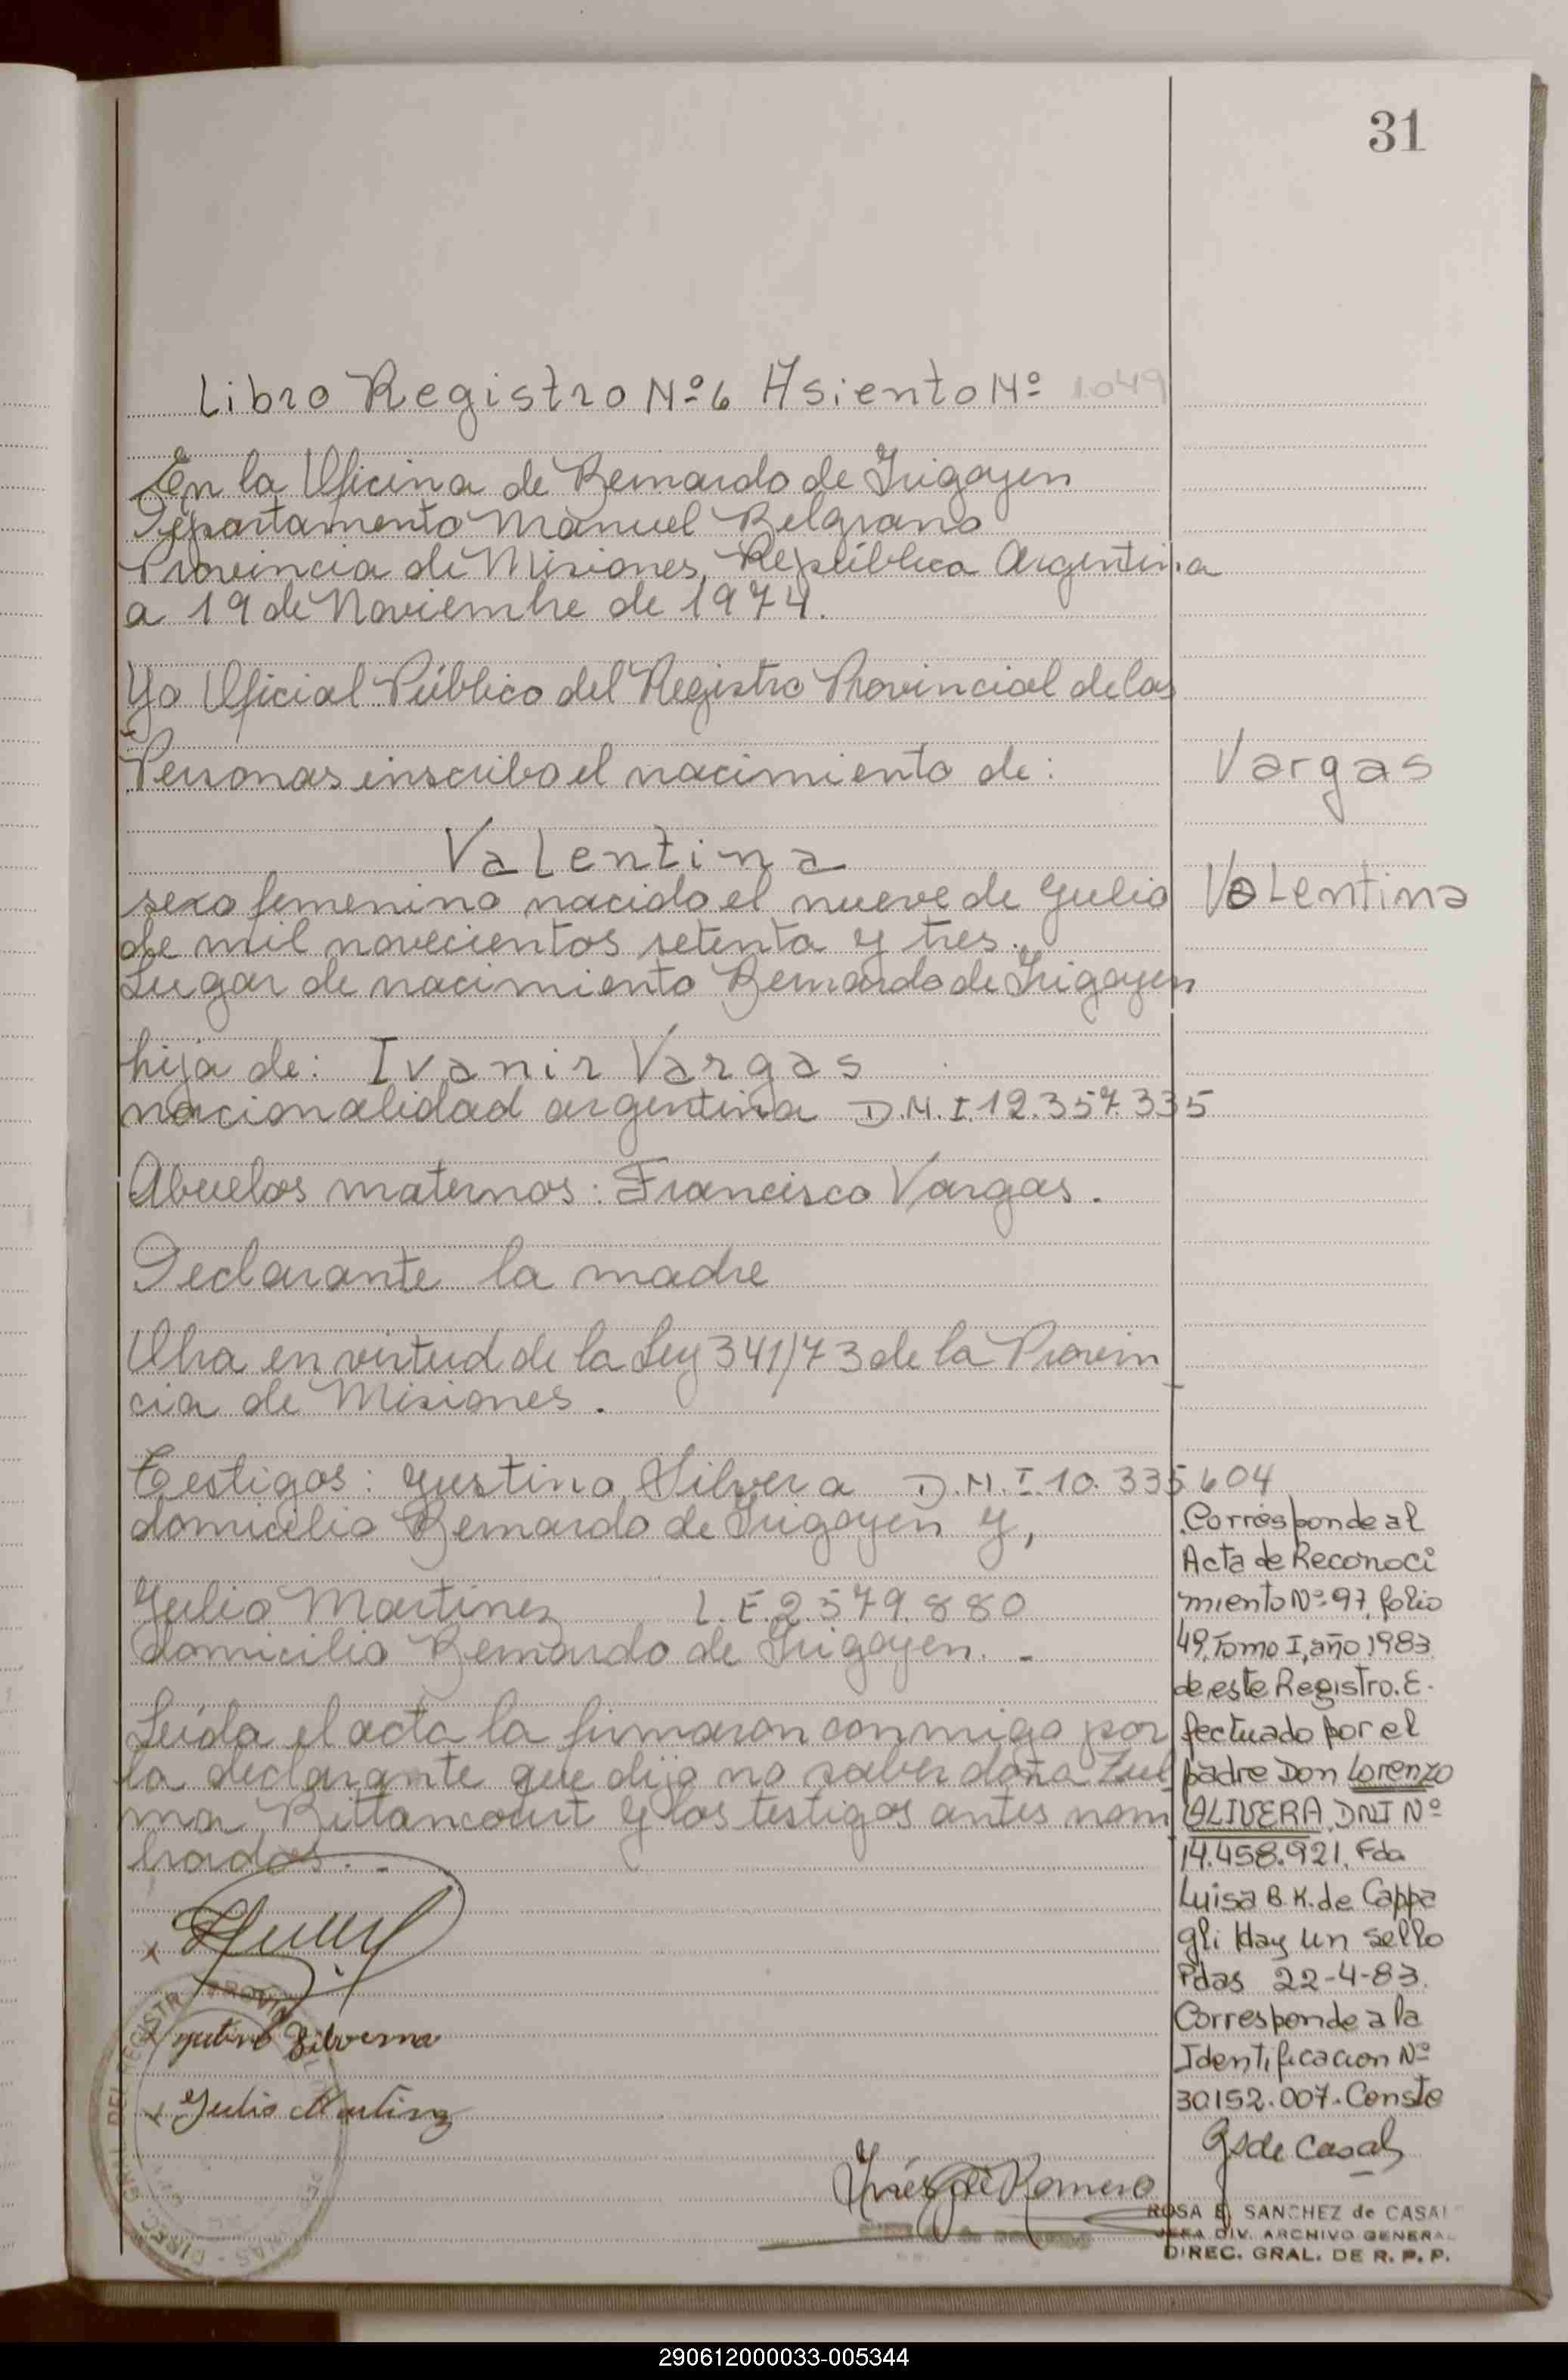 31
Libro Registro Nº6 Asiento Nº 1.049
En la Oficina de Bernardo de Irigoyen
Departamento Manuel Belgrano
Provincia de Misiones, República Argentina
a 19 de Noviembre de 1974.
Yo Oficial Público del Registro Provincial de las
Personas inscribo el nacimiento de:
Valentina
sexo femenino nacido el nueve de Julio
de mil novecientos setenta y tres.
Lugar de nacimiento Bernardo de Irigoyen
hija de: Ivanir Vargas
nacionalidad argentina D.N.I. 12.357.335
Abuelos maternos: Francisco Vargas.
Declarante la madre
Obra en virtud de la Ley 341/73 de la Provin
cia de Misiones.
Testigos: Justino Silvera D.N.I. 10.335604
domicilio Bernardo de Irigoyen y,
Julio Martinez L.E. 2.579.880
domicilio Bernardo de Irigoyen. -
Leída el acta la firmaron conmigo por
la declarante que dijo no saber doña Zul
ma Bittancourt y los testigos antes nom
brados. -
x
Justino Silverna
x Julio Martinz
Inés de Romero
Vargas
Valentina
Corresponde al
Acta de Reconoci
miento Nº 97, folio
49, Tomo I, año 1983
de este Registro. E-
fectuado por el
padre Don Lorenzo
OLIVERA, DNI Nº
14.458.921. Fda
Luisa B.K. de Cappa
gli Hay un sello
Pdas 22-4-83.
Corresponde a la
Identificacion Nº
30.152.007. Conste
GSde Casal
ROSA E. SANCHEZ de CASAL
JEFA DIV. ARCHIVO GENERAL
DIREC. GRAL. DE R. P. P.
290612000033-005344